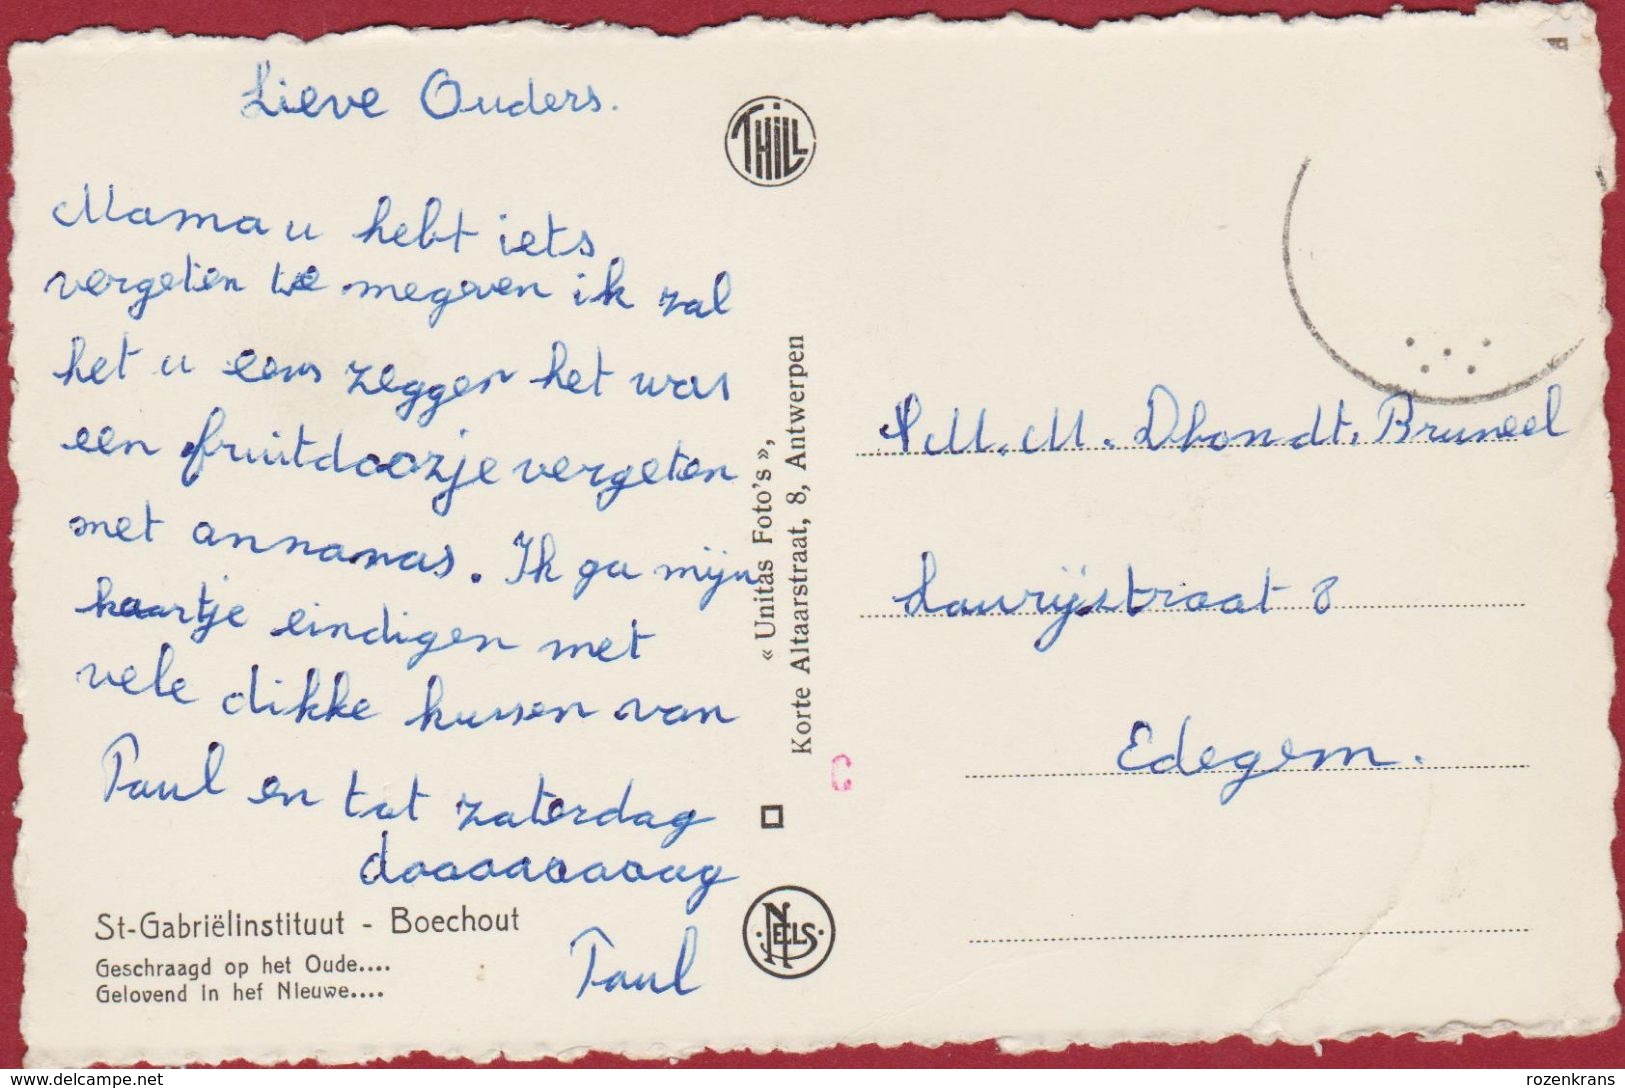 Lieve Ouders.
Mama u hebt iets
vergeten te megeven ik zal
het u eens zeggen het was
een fruitdoozje vergeten
met annamas. Ik ga mijn
kaartje eindigen met
vele dikke kussen van
Paul en tot zaterdag
daaaaaaaaag
Paul
St-Gabriëlinstituut - Boechout
Geschraagd op het Oude....
Gelovend in het Nieuwe....
THILL
« Unitas Foto's »,
Korte Altaarstraat, 8, Antwerpen
C
NELS
M. M. Dhondt. Bruneel
Laurijstraat 8
Edegem.
delcampe.net
rozenkrans